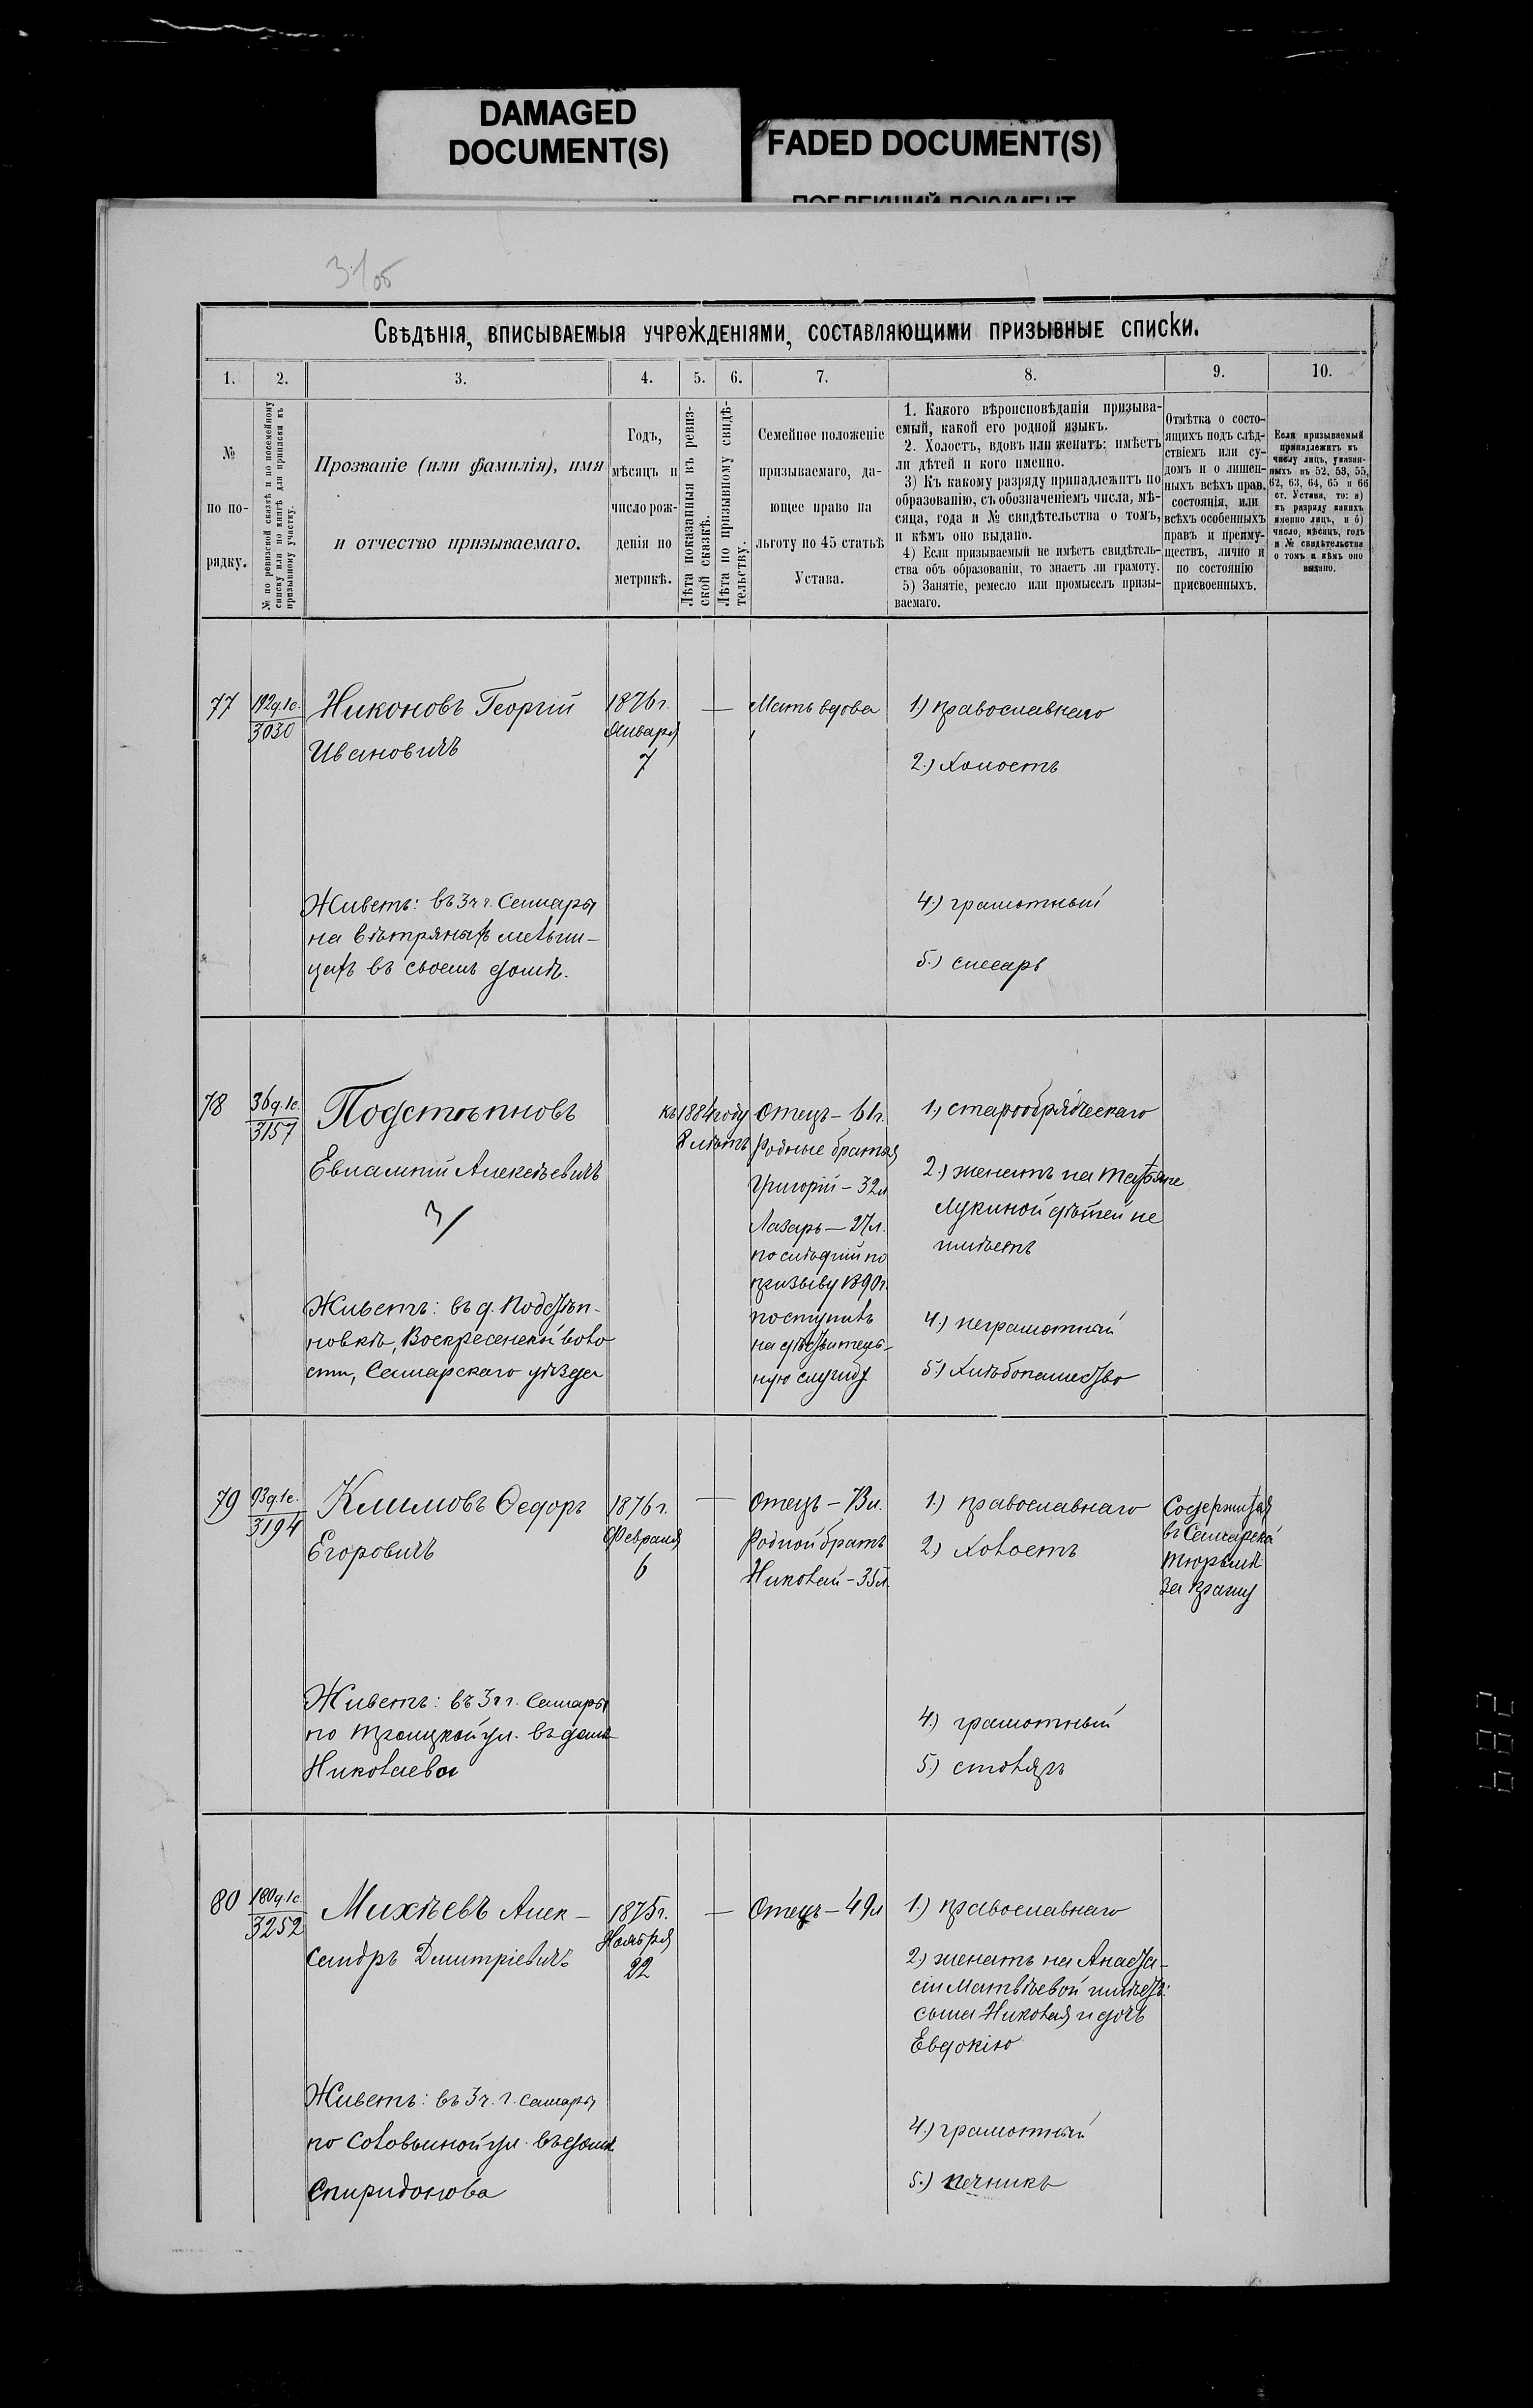 DAMAGED
DOCUMENT(S)
FADED DOCUMENT(S)
Свѣдѣнія, вписываемыя учрежденіями, составляющими призывные списки.
1. 2. 3. 4. 5. 6. 7. 8. 9. 10.
№
по по-
рядку.
№ по ревизской сказкѣ и по посемейному
списку или по книгѣ для приписки къ
призывному участку.
Прозваніе (или фамилія), имя
и отчество призываемаго.
Годъ,
мѣсяцъ и
число рож-
денія по
метрикѣ.
Лѣта показанныя въ ревиз-
ской сказкѣ.
Лѣта по призывному свидѣ-
тельству.
Семейное положеніе
призываемаго, да-
ющее право на
льготу по 45 статьѣ
Устава.
1. Какого вѣроисповѣданія призыва-
емый, какой его родной языкъ.
2. Холостъ, вдовъ или женатъ: имѣетъ
ли дѣтей и кого именно.
3) Къ какому разряду принадлежитъ по
образованію, съ обозначеніемъ числа, мѣ-
сяца, года и № свидѣтельства о томъ,
и кѣмъ оно выдано.
4) Если призываемый не имѣетъ свидѣтель-
ства объ образованіи, то знаетъ ли грамоту.
5) Занятіе, ремесло или промыселъ призы-
ваемаго.
Отмѣтка о состо-
ящихъ подъ слѣд-
ствіемъ или су-
домъ и о лишен-
ныхъ всѣхъ прав.
состоянія, или
всѣхъ особенныхъ
правъ и преиму-
ществъ, лично и
по состоянію
присвоенныхъ.
Если призываемый
принадлежитъ къ
числу лицъ, указан-
ныхъ въ 52, 53, 55,
62, 63, 64, 65 и 66
ст. Устава, то: а)
къ разряду какихъ
именно лицъ, и б)
число, мѣсяцъ, годъ
и № свидѣтельства
о томъ и кѣмъ оно
выдано.
77
192д.1с.
3030
Никоновъ Георгій
Ивановичъ
Живетъ: въ 3 ч г. Самары
на вѣтряныхъ мельни-
цахъ въ своемъ домѣ.
1876 г.
Января
7
—
Мать вдова
1) православнаго
2.) Холостъ
4.) грамотный
5.) слесарь
78
36д.1с.
3157
Подстѣпновъ
Евлампій Алексѣевичъ
Живетъ: въ д. Подстѣп-
новкѣ, Воскресенской воло
сти, Самарскаго уѣзда
къ 1884 году
8 лѣтъ
Отецъ — 61 г.
Родные братья
Григорій — 32 л
Лазарь — 27 л.
послѣдній по
призыву 1890 г.
поступилъ
на дѣйствитель-
ную службу
1.) старообрядческаго
2.) женатъ на Татьяне
Лукиной дѣтей не
имѣетъ
4.) неграмотный
5.) Хлѣбопашество
79
93д.1с.
3194
Климовъ Ѳедоръ
Егоровичъ
Живетъ: въ 3 ч г. Самары
по Троицкой ул. въ домѣ
Николаева
1876 г.
Февраля
6
—
Родной братъ
Николай — 35 л.
1.) православнаго
2.) Холостъ
4.) грамотный
5.) столяръ
Содержится
въ Самарской
тюрьмѣ
за кражу
80
180д.1с.
3252
Михѣевъ Алек-
сандръ Дмитріевичъ
Живетъ: въ 3 ч. г. Самары
по Соловьиной ул. въ домѣ
Спиридонова
1875 г.
Ноября
22
—
Отецъ — 49 л
1.) православнаго
2.) женатъ на Анаста-
сіи Матвѣевой имѣетъ:
сына Николая и дочь
Евдокію
4.) грамотный
5.) печникъ
689